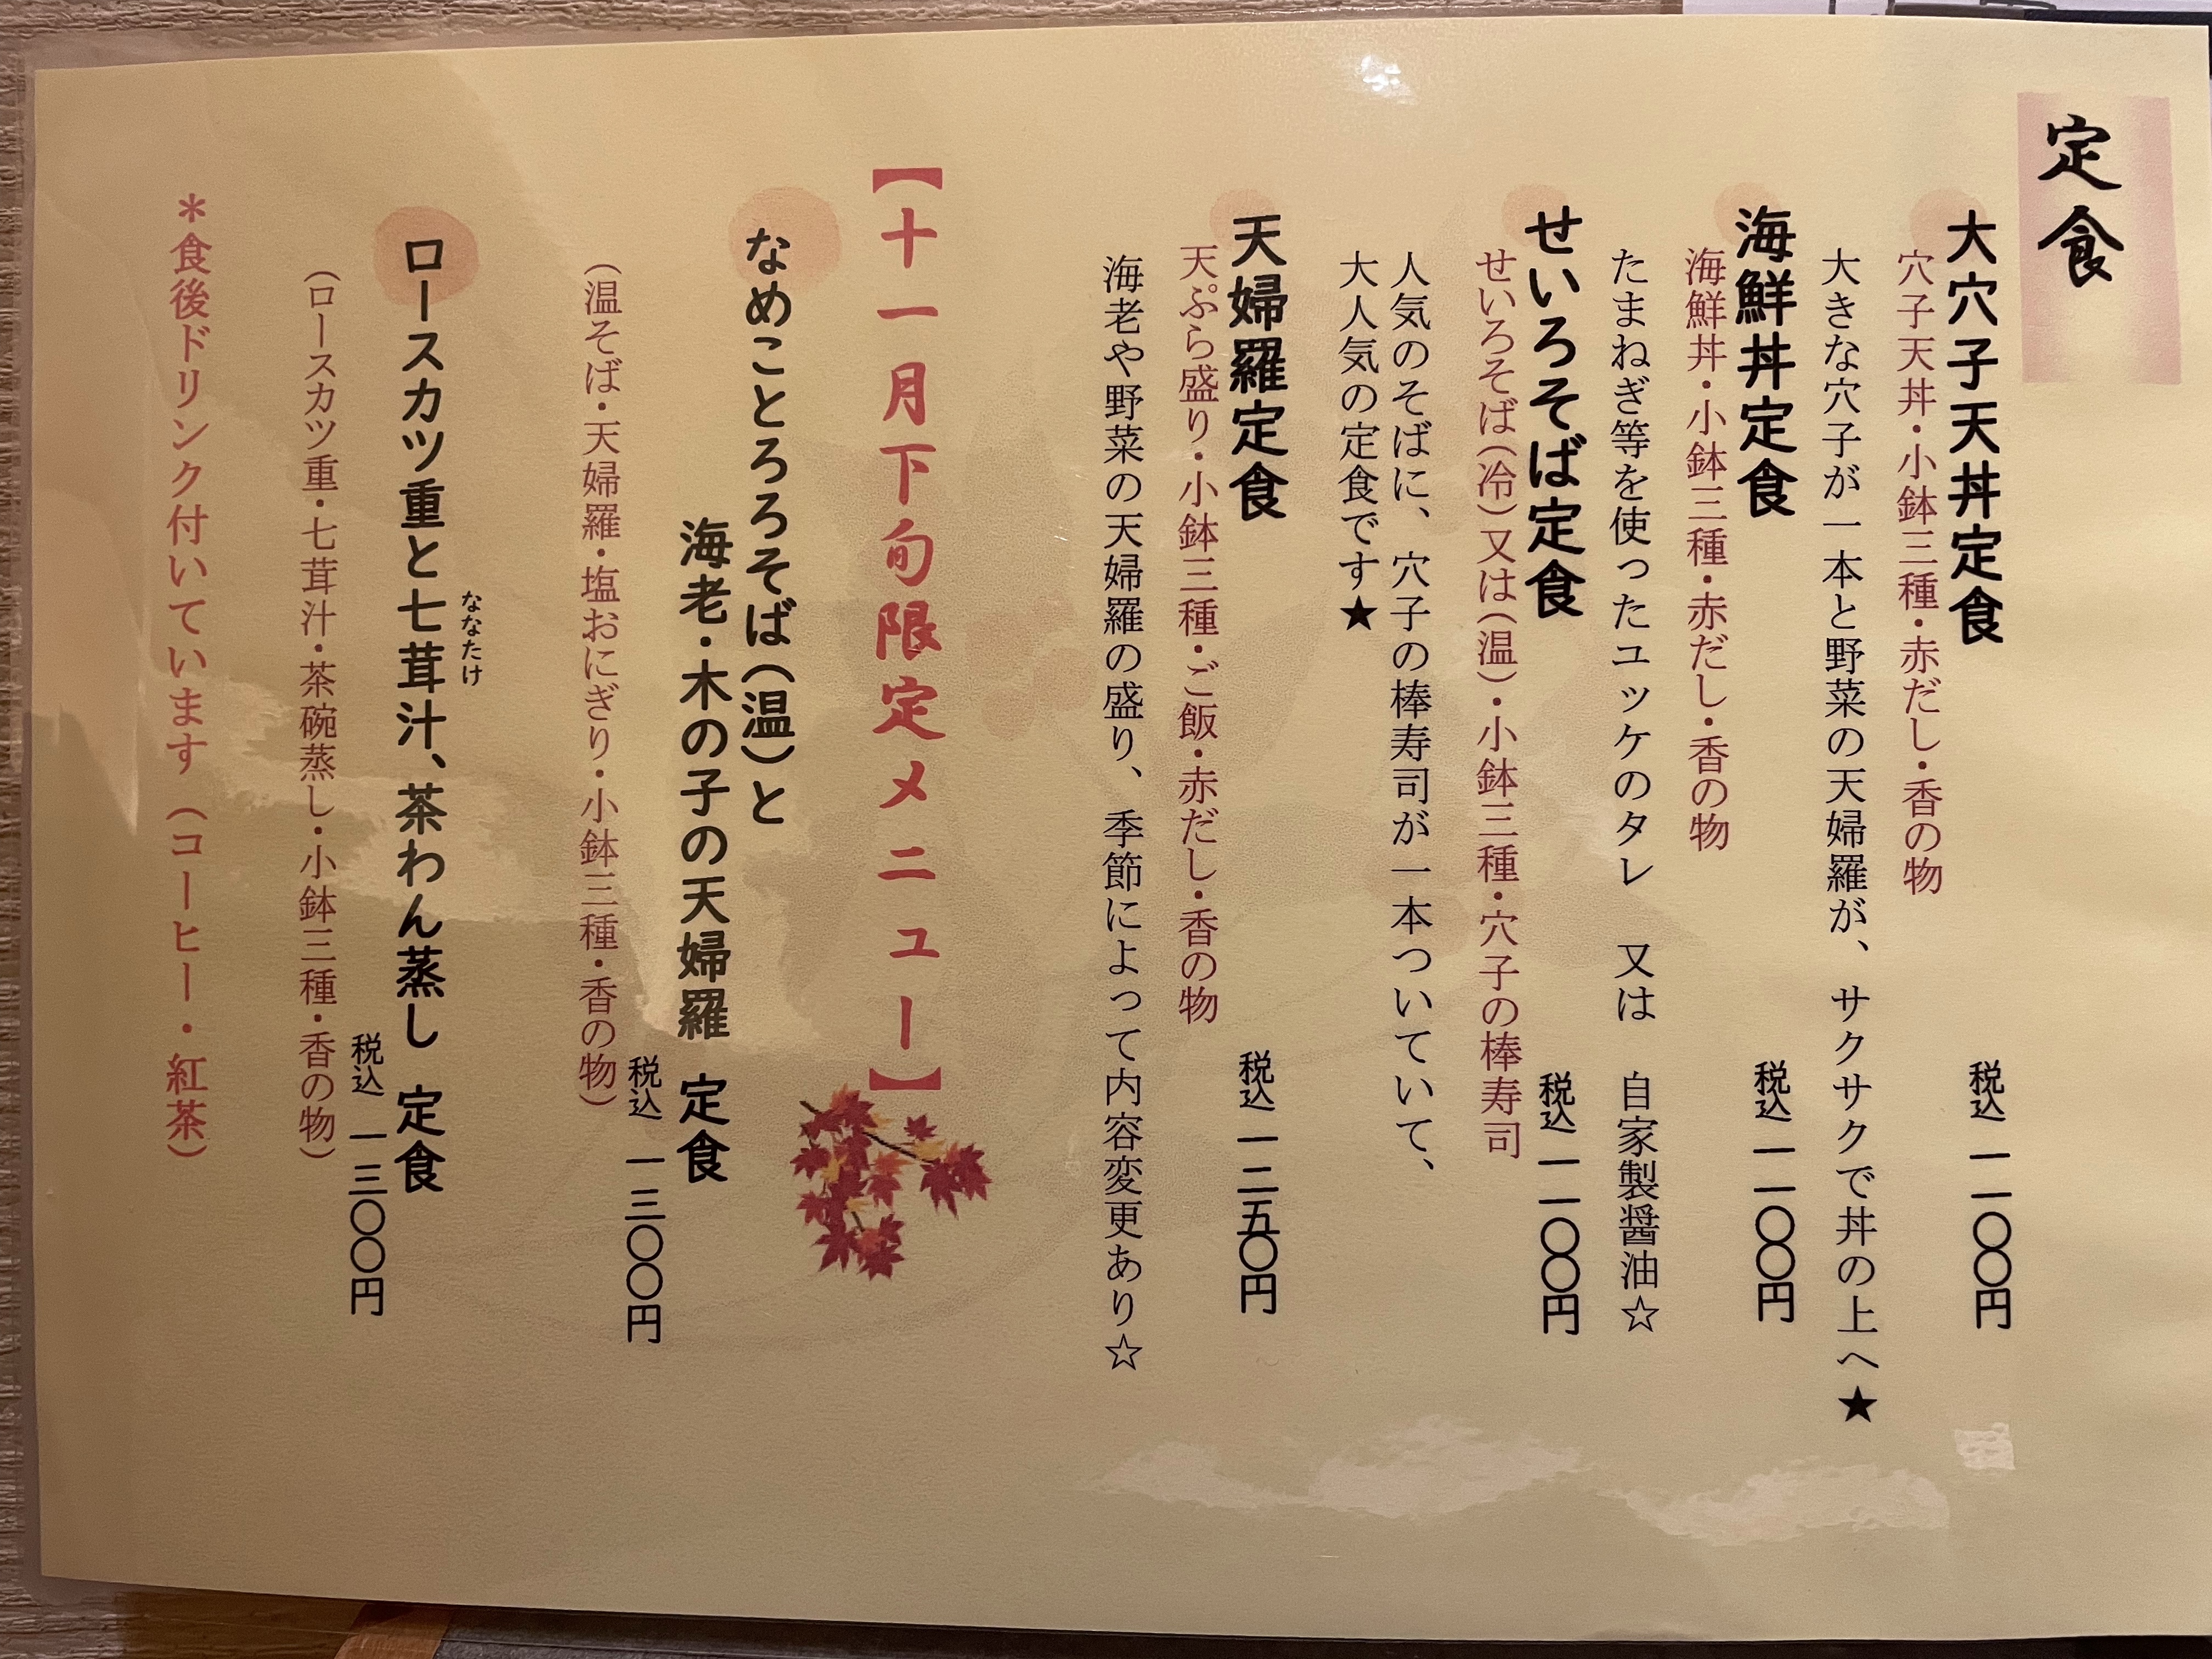 定食
大穴子天丼定食 税込 一一〇〇円
穴子天丼・小鉢三種・赤だし・香の物
大きな穴子が一本と野菜の天婦羅が、サクサクで丼の上へ★
海鮮丼定食 税込 一一〇〇円
海鮮丼・小鉢三種・赤だし・香の物
たまねぎ等を使ったユッケのタレ 又は 自家製醤油☆
せいろそば定食 税込 一一〇〇円
せいろそば(冷)又は(温)・小鉢三種・穴子の棒寿司
人気のそばに、穴子の棒寿司が一本ついていて、
大人気の定食です★
天婦羅定食 税込 一二五〇円
天ぷら盛り・小鉢三種・ご飯・赤だし・香の物
海老や野菜の天婦羅の盛り、季節によって内容変更あり☆
【十一月下旬限定メニュー】
なめことろろそば(温)と
海老・木の子の天婦羅 定食
税込 一三〇〇円
(温そば・天婦羅・塩おにぎり・小鉢三種・香の物)
ななたけ
ロースカツ重と七茸汁、茶わん蒸し 定食
税込 一三〇〇円
(ロースカツ重・七茸汁・茶碗蒸し・小鉢三種・香の物)
＊食後ドリンク付いています(コーヒー・紅茶)